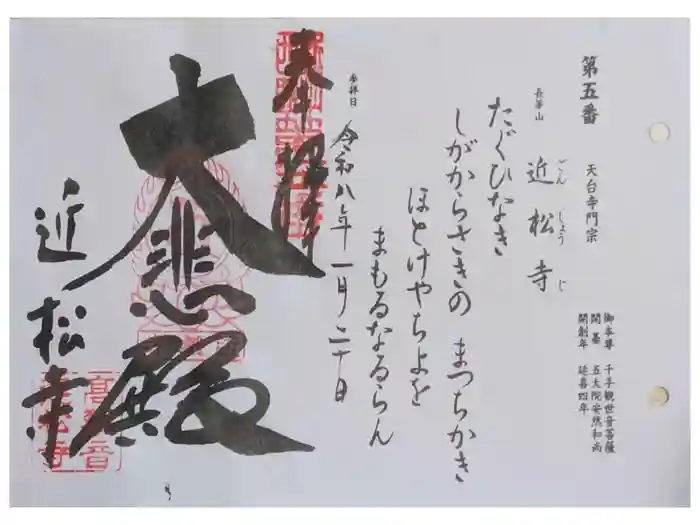 第五番
天台寺門宗
御本尊 千手観世音菩薩
開基 五大院安然和尚
開創年 延喜四年
長等山
近松寺
ごんしょうじ
たぐひなき
しがからさきの まつちかき
ほとけやちよを
まもるなるらん
参拝日
令和八年一月二十日
奉拝
大悲殿
近松寺